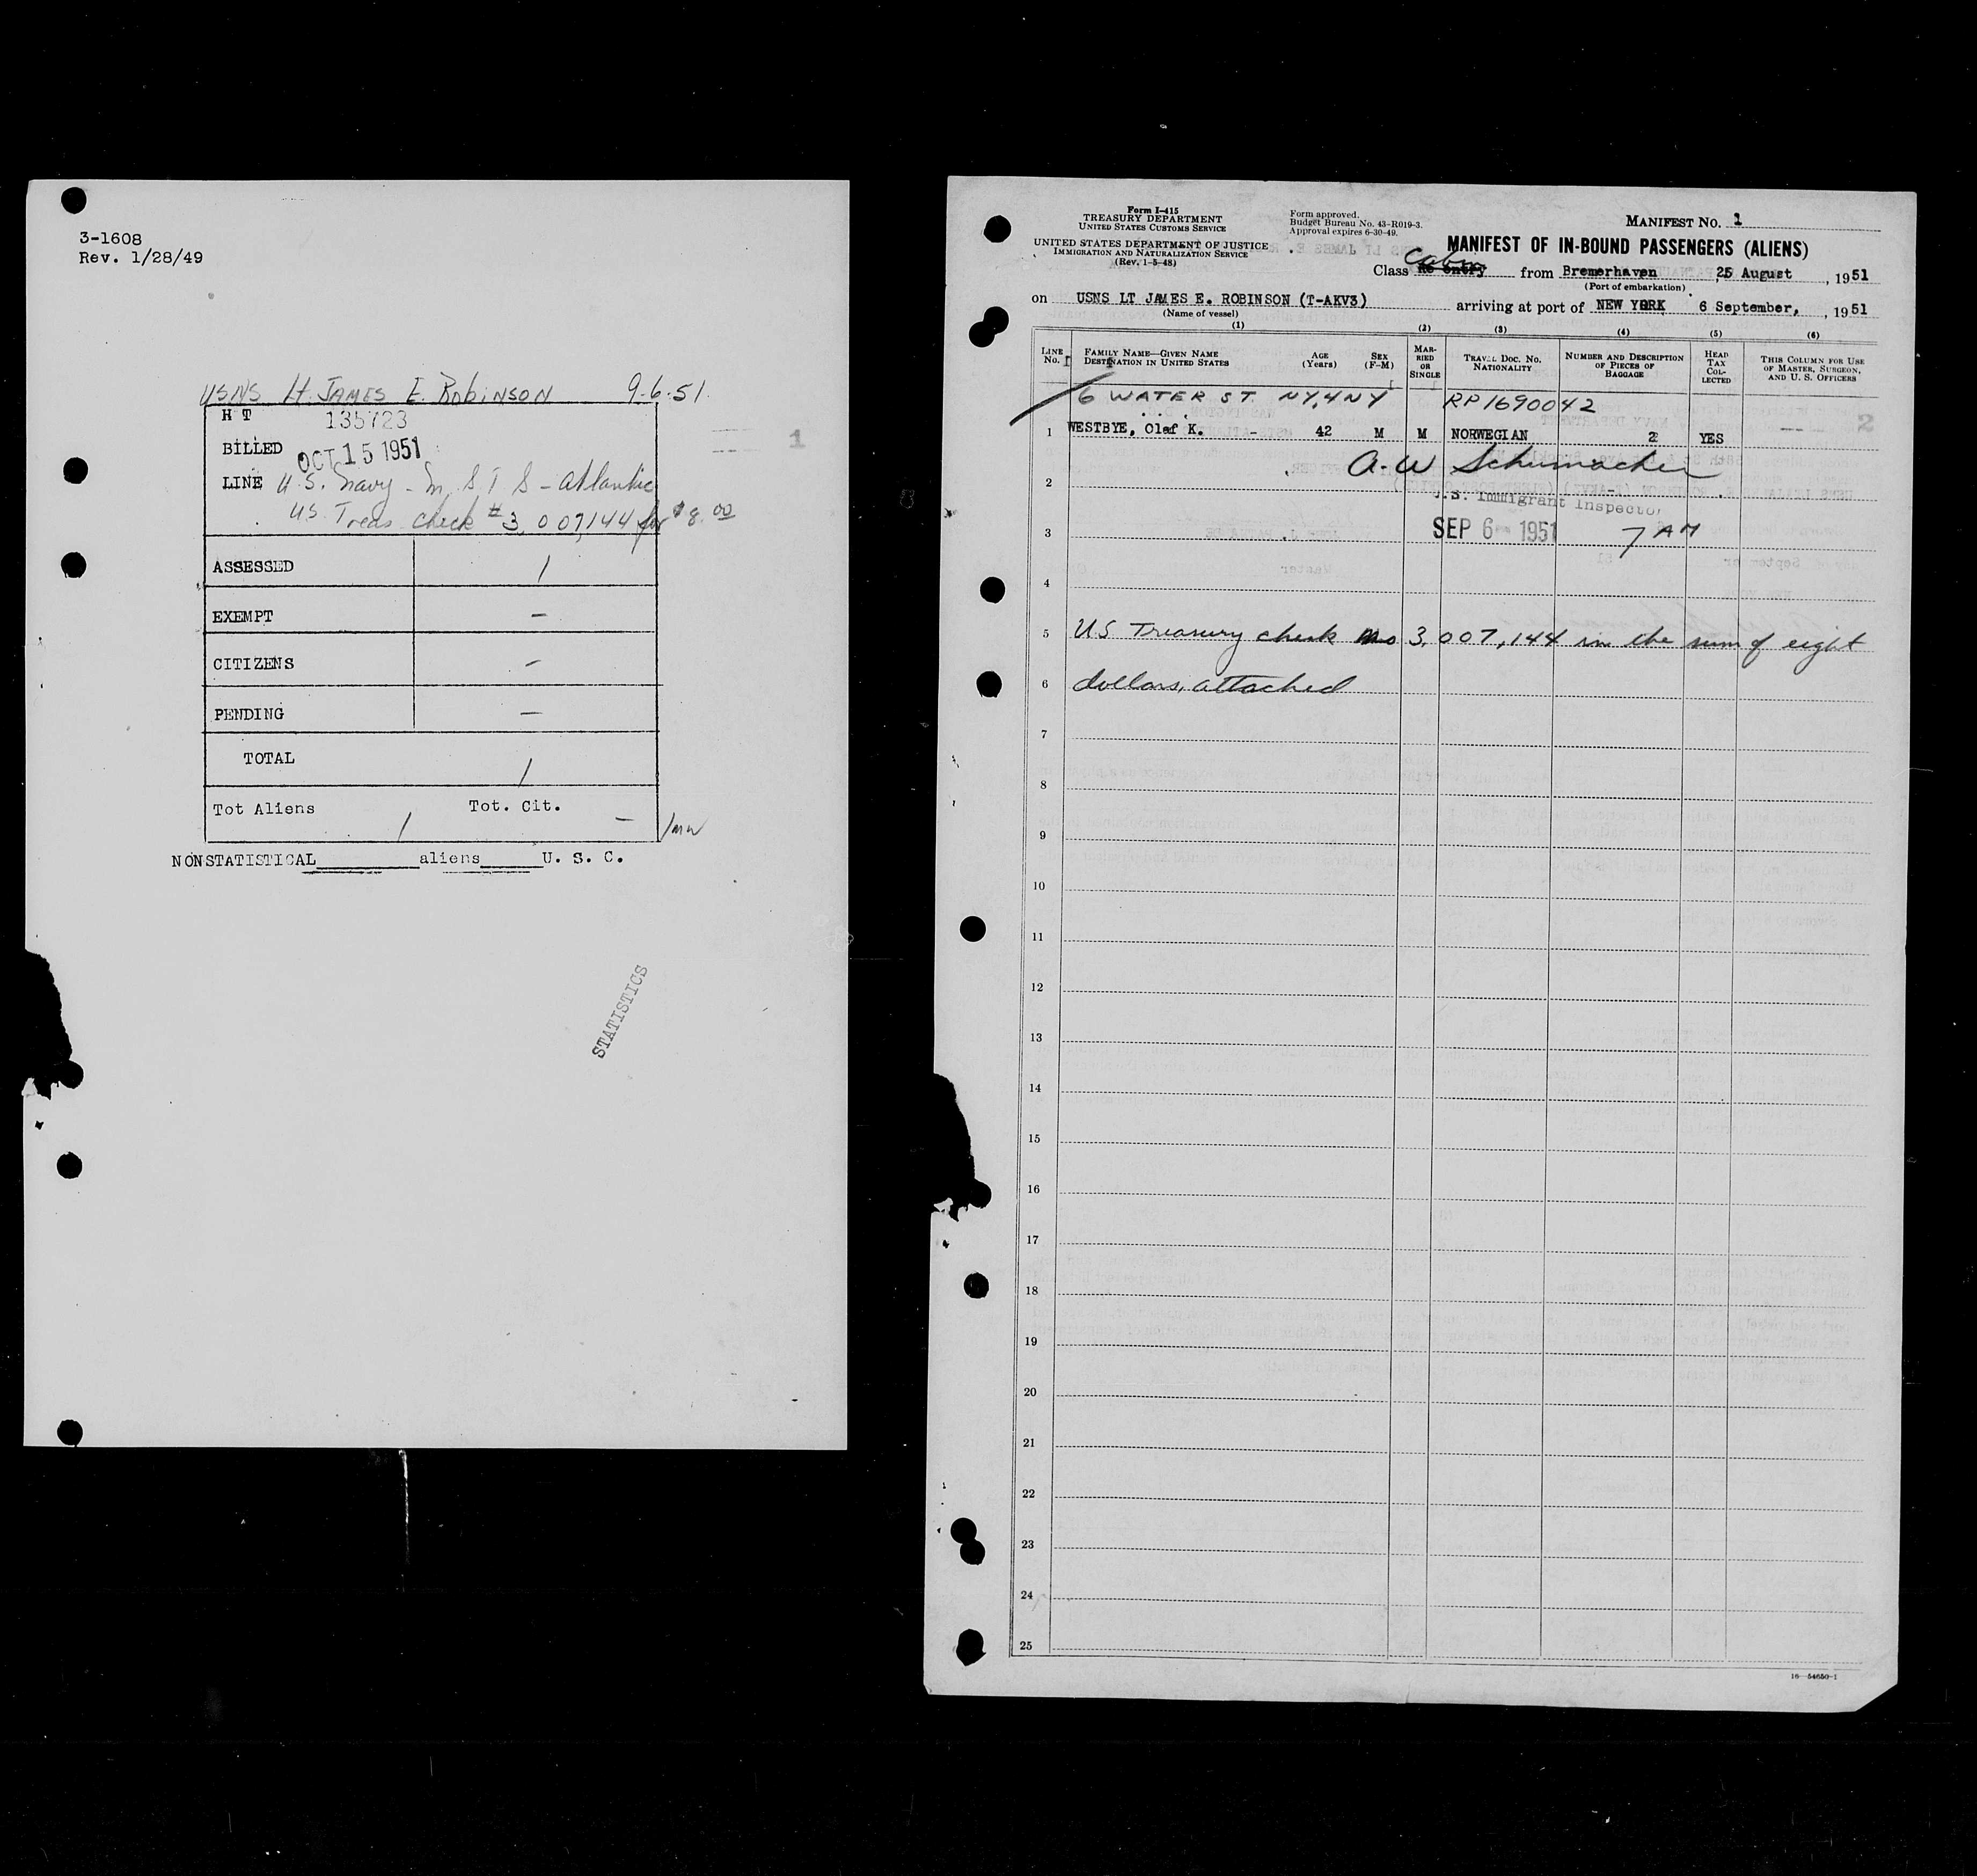 3-1608
Rev. 1/28/49
USNS Lt. JAMES E. RobiNSON 9-6-51.
H T 135723
BILLED OCT 15 1951
1
LINE U.S. Navy - M. S T S - Atlantic
US Treas Check # 3,007,144 for $8.00
ASSESSED 1
EXEMPT –
CITIZENS –
PENDING –
TOTAL 1
Tot Aliens 1 Tot. Cit. –
NONSTATISTICAL aliens U. S. C.
STATISTICS
Form I-415
TREASURY DEPARTMENT
UNITED STATES CUSTOMS SERVICE
UNITED STATES DEPARTMENT OF JUSTICE
IMMIGRATION AND NATURALIZATION SERVICE
(Rev. 1-5-48)
Form approved.
Budget Bureau No. 43-R019-3.
Approval expires 6-30-49.
MANIFEST No. 1
MANIFEST OF IN-BOUND PASSENGERS (ALIENS)
Cabin
Class Re entry from Bremerhaven, 25 August, 1951
(Port of embarkation)
on USNS LT JAMES E. ROBINSON (T-AKV3) arriving at port of NEW YORK 6 September, , 1951
(Name of vessel)
(1) (2) (3) (4) (5) (6)
LINE No. FAMILY NAME—GIVEN NAME DESTINATION IN UNITED STATES AGE (Years) SEX (F-M) MARRIED OR SINGLE TRAVEL DOC. NO. NATIONALITY NUMBER AND DESCRIPTION OF PIECES OF BAGGAGE HEAD TAX COLLECTED THIS COLUMN FOR USE OF MASTER, SURGEON, AND U. S. OFFICERS
6 WATER ST. NY, 4 NY RP1690042
2
1 WESTBYE, Olaf K. - 42 M M NORWEGIAN 2 YES
A-W Schumacher
2
U.S. Immigrant Inspector
3 SEP 6 1951 7 AM
4
5 US Treasury check no 3,007,144 in the sum of eight
6 dollars, attached
7
8
9
10
11
12
13
14
15
16
17
18
19
20
21
22
23
24
25
16—54650-1